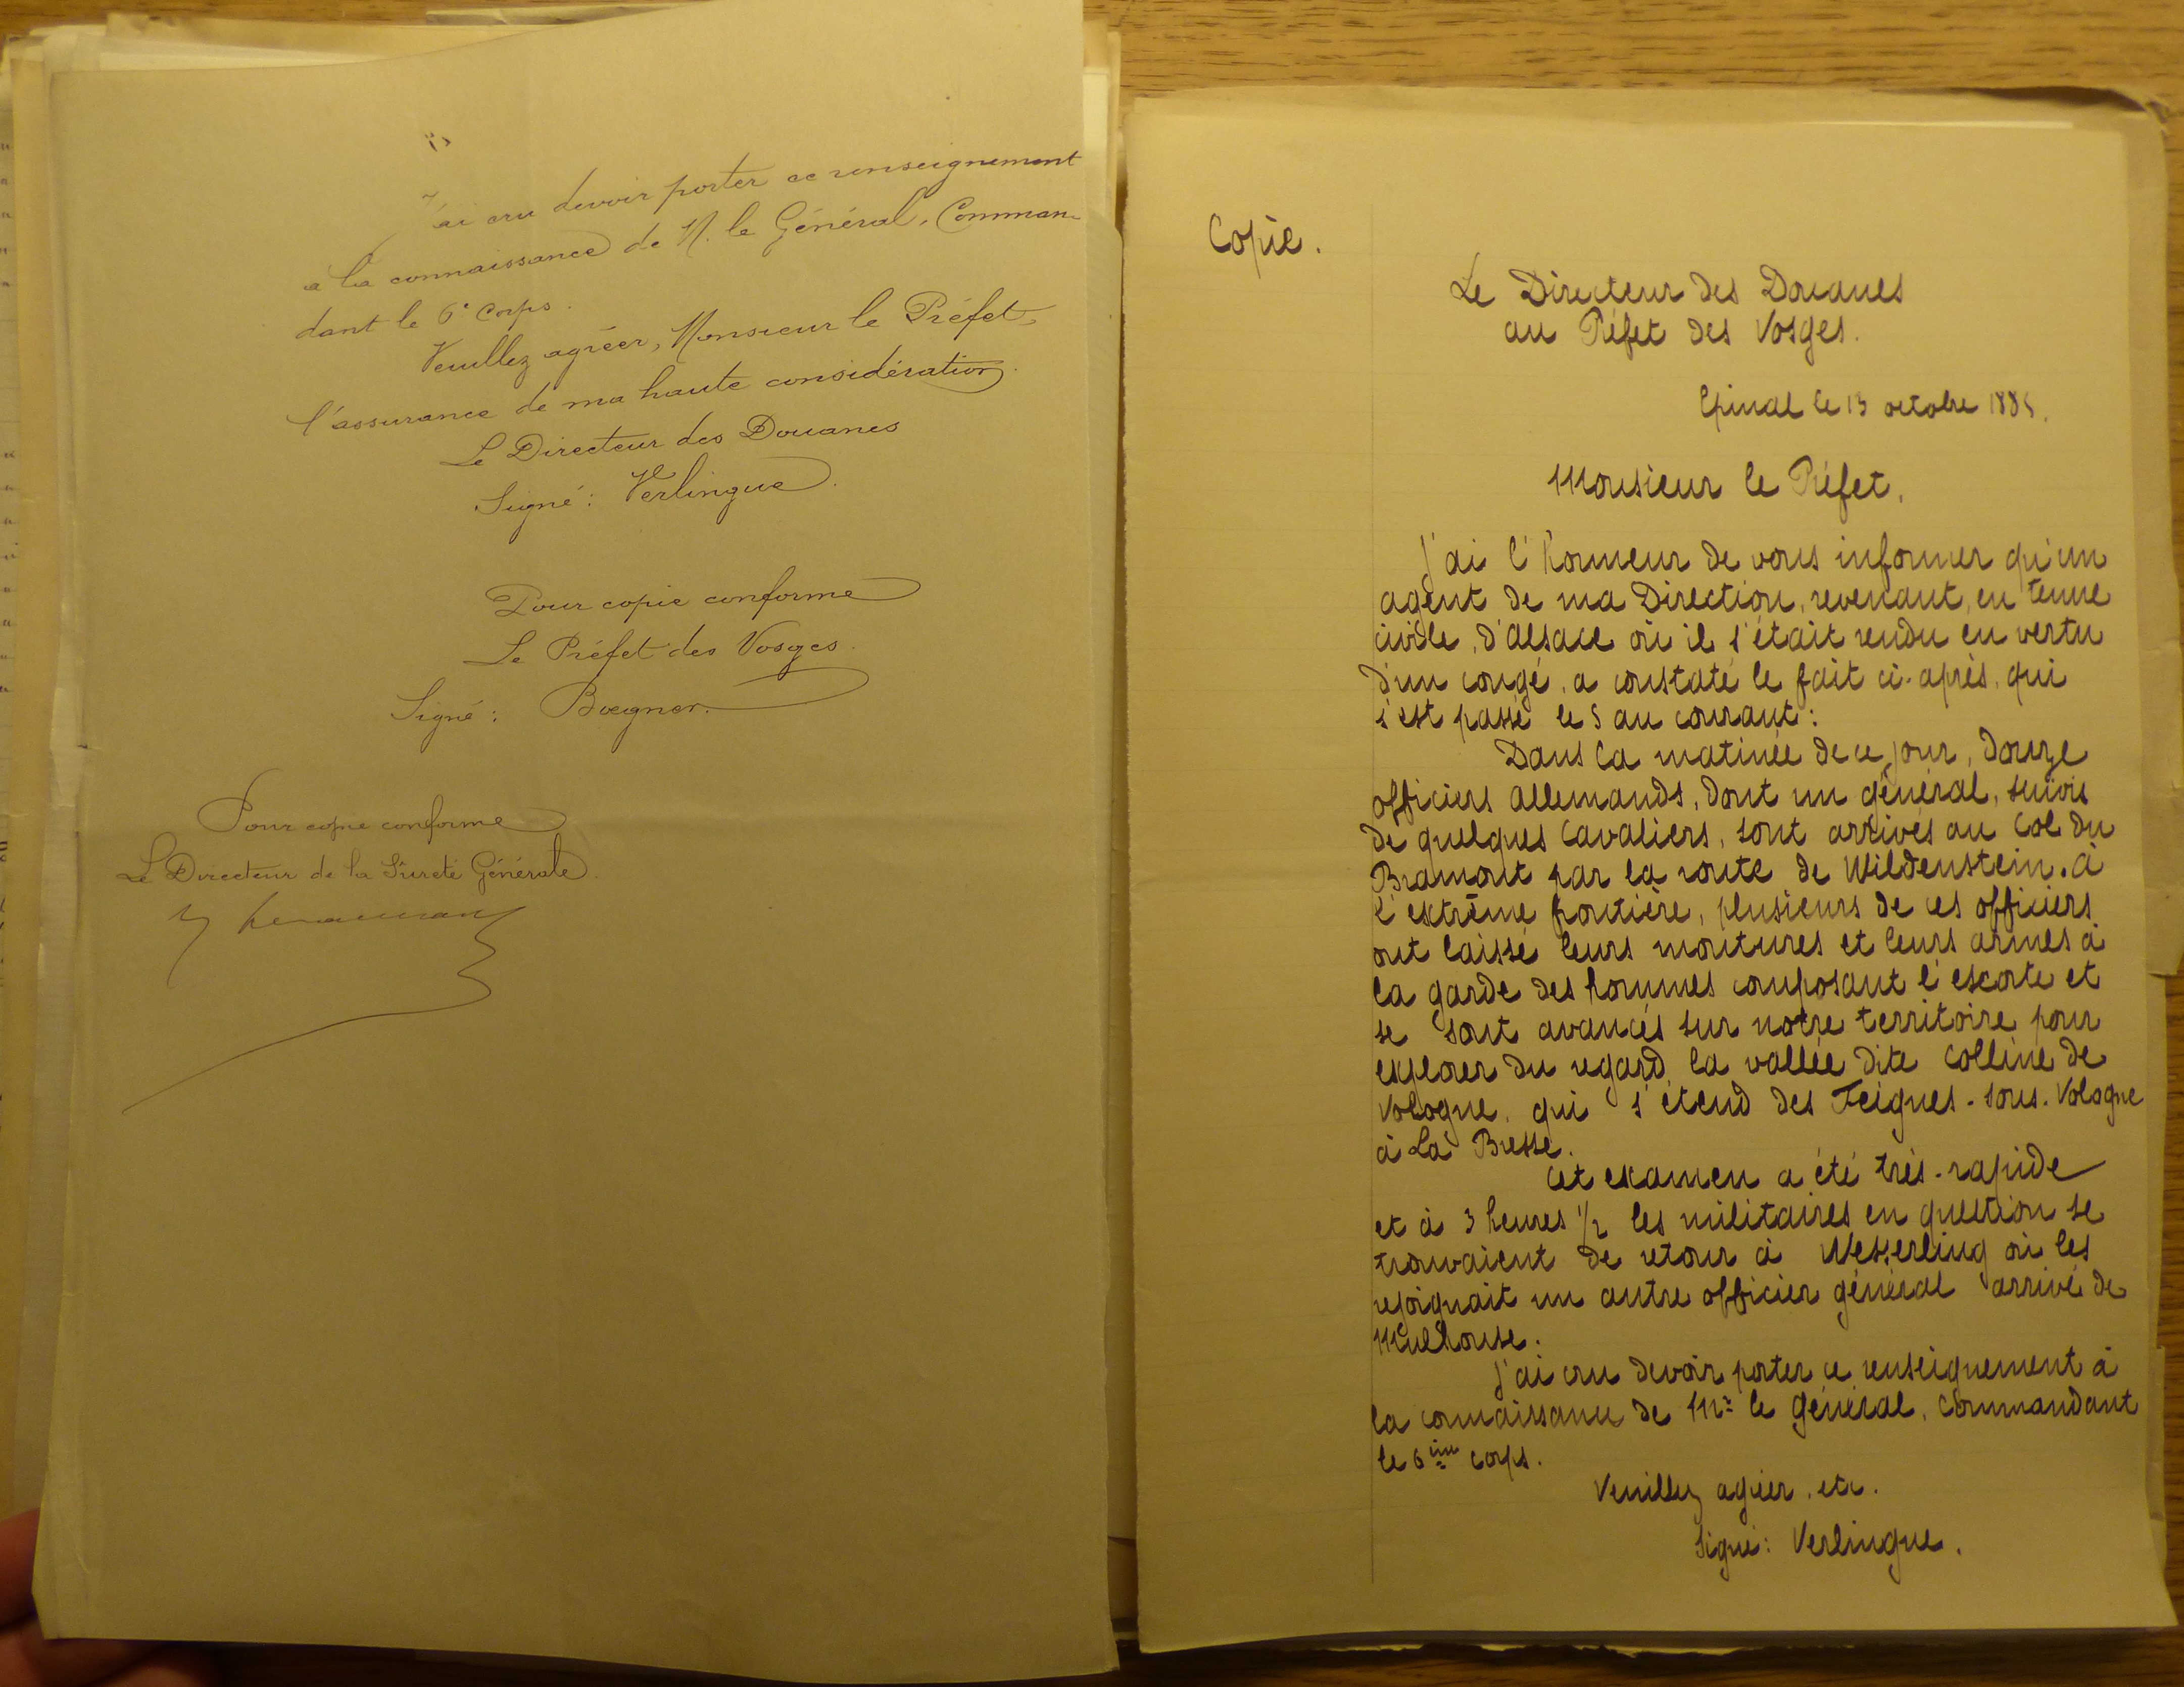 J'ai cru devoir porter ce renseignement
à la connaissance de M. le Général, Comman-
dant le 6e Corps.
Veuillez agréer, Monsieur le Préfet,
l'assurance de ma haute considération.
Le Directeur des Douanes
Signé : Verlingue.
Pour copie conforme
Le Préfet des Vosges.
Signé : Bœgner.
Pour copie conforme
Le Directeur de la Sûreté Générale.
Copie.
Le Directeur des Douanes
au Préfet des Vosges.
Epinal le 13 octobre 1885.
Monsieur le Préfet,
J'ai l'honneur de vous informer qu'un
agent de ma Direction, revenant, en tenue
civile, d'Alsace où il s'était rendu en vertu
d'un congé, a constaté le fait ci-après, qui
s'est passé le 5 au courant :
Dans la matinée de ce jour, douze
officiers allemands, dont un général, suivis
de quelques cavaliers, sont arrivés au Col du
Bramont par la route de Wildenstein. à
l'extrême frontière, plusieurs de ces officiers
ont laissé leurs montures et leurs armes à
la garde des hommes composant l'escorte et
se sont avancés sur notre territoire pour
explorer du regard la vallée dite colline de
Vologne, qui s'étend des Feignes-sous-Vologne
à La Bresse.
Cet examen a été très-rapide
et à 3 heures 1/2 les militaires en question se
trouvaient de retour à Wesserling où les
rejoignait un autre officier général arrivé de
Mulhouse.
J'ai cru devoir porter ce renseignement à
la connaissance de Mr le Général, Commandant
le 6ème corps.
Veuillez agréer, etc.
Signé : Verlingue.